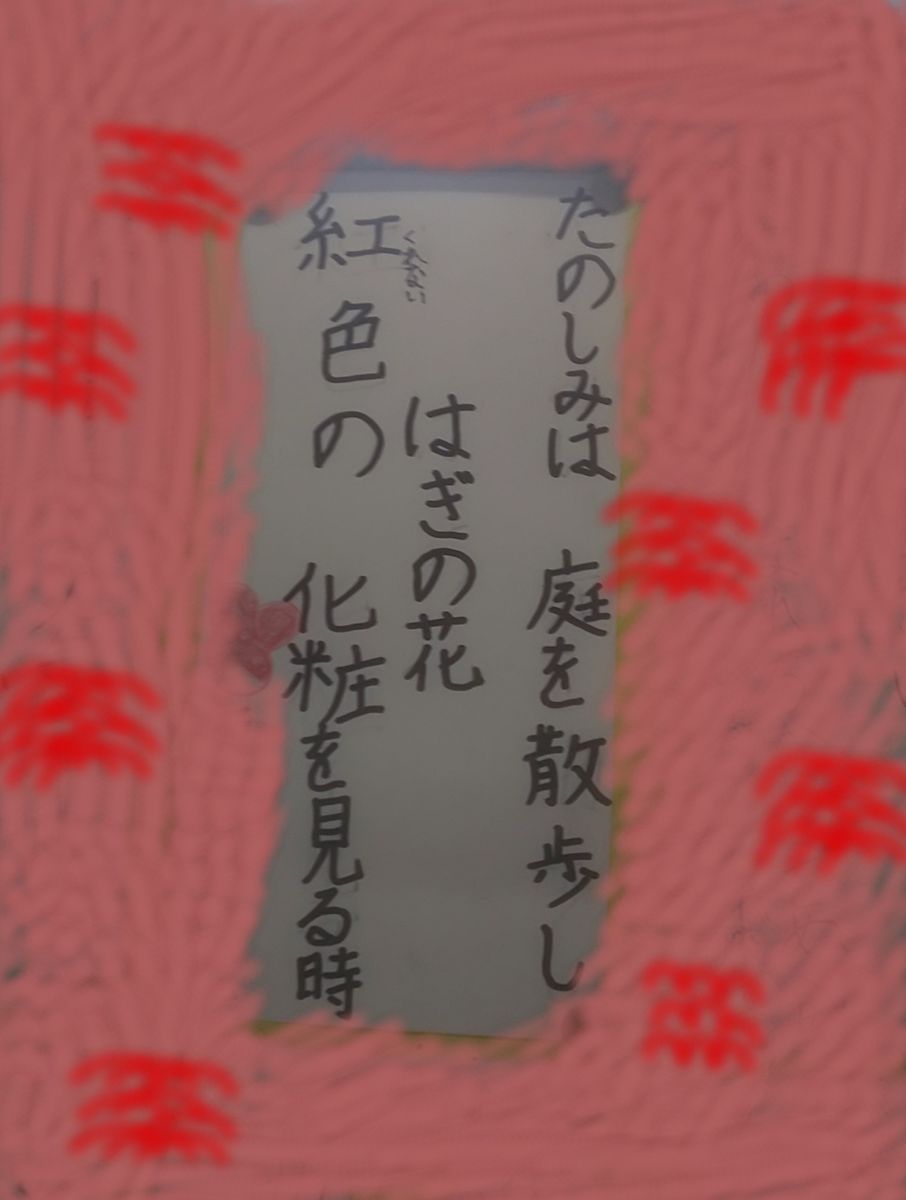 たのしみは 庭を散歩し
はぎの花
紅色の 化粧を見る時
くれない